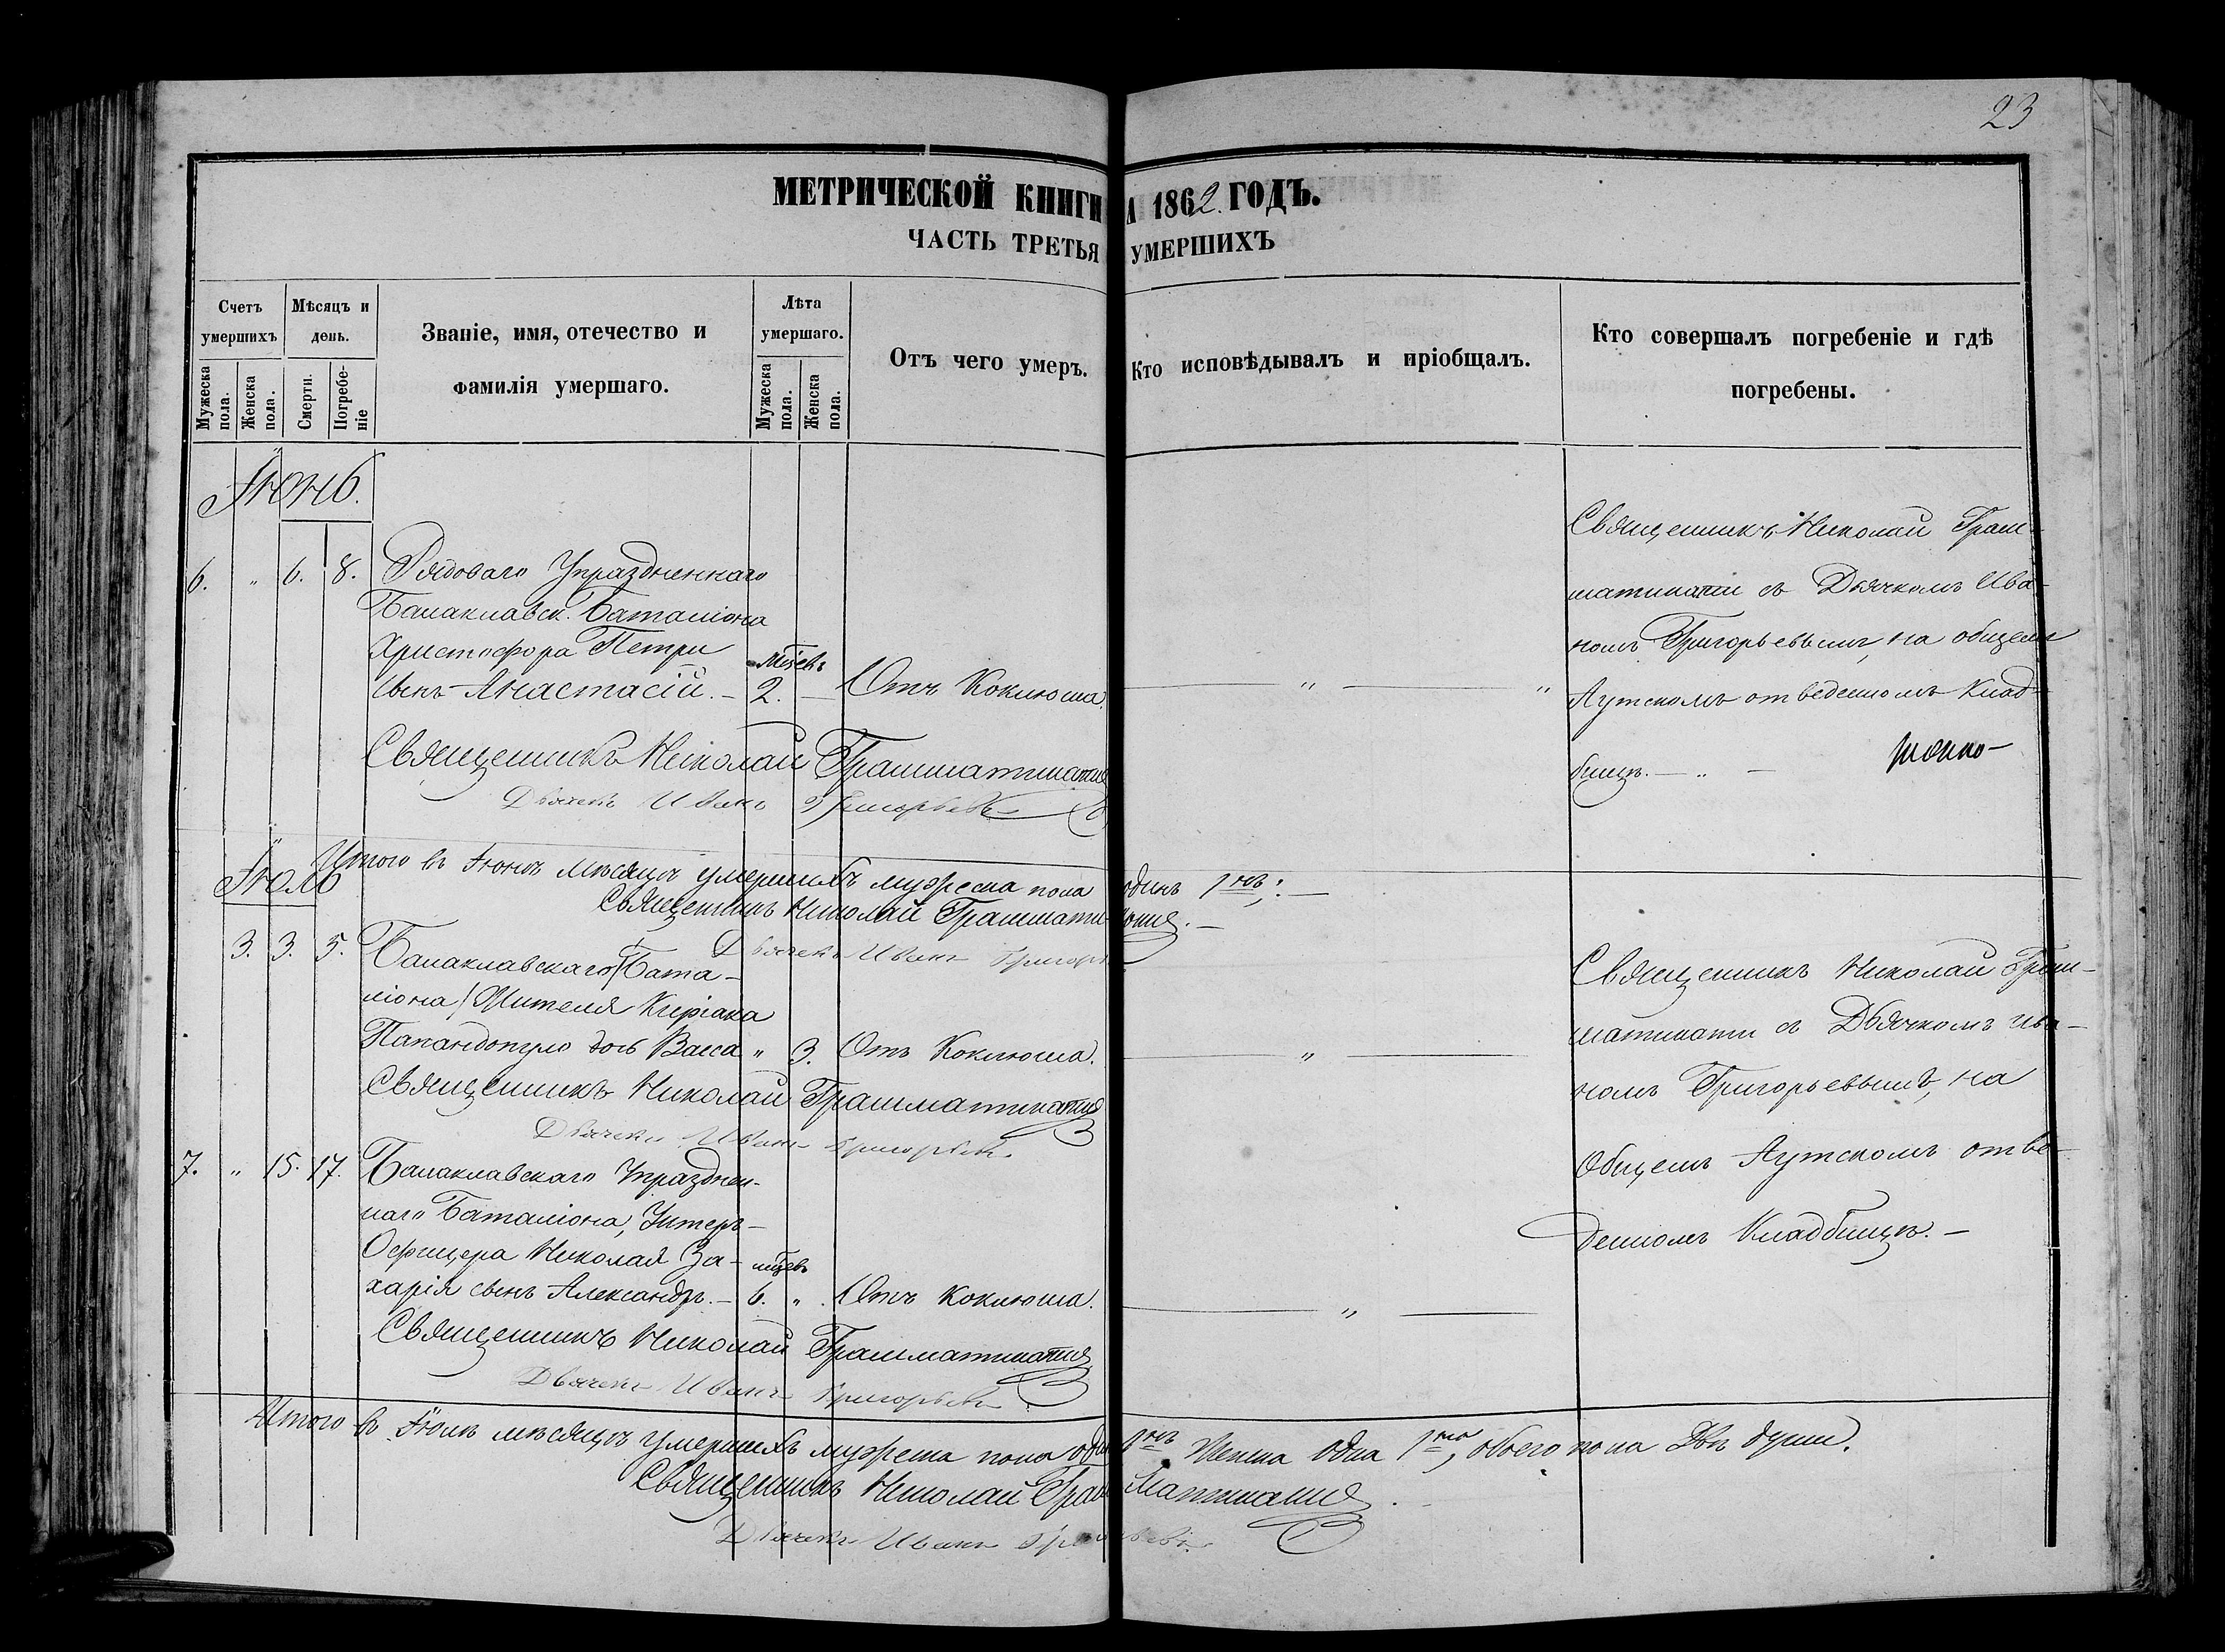 23
МЕТРИЧЕСКОЙ КНИГИ А 1862. ГОДЪ.
ЧАСТЬ ТРЕТЬЯ УМЕРШИХЪ
Счетъ умершихъ
Мужеска пола.
Женска пола.
Мѣсяцъ и день.
Смерти.
Погребе-
ніе
Званіе, имя, отечество и
фамилія умершаго.
Лѣта
умершаго.
Мужеска пола.
Женска пола.
Отъ чего умеръ.
Кто исповѣдывалъ и пріобщалъ.
Кто совершалъ погребеніе и гдѣ
погребены.
Іюнь.
6. " 6. 8. Рядоваго Упраздненнаго
Балаклавск. Баталіона
Христофора Петри
сынъ Анастасій. – мцевъ 2. – Отъ Коклюша. " "
Священникъ Николай Грам-
матикати съ Дьячкомъ Ива-
номъ Григорьевымъ, на общемъ
Аутскомъ отведенномъ Клад-
бищѣ. – " –
Священникъ Николай Грамматикати
Дьячекъ Иванъ Григорьевъ
Итого въ Іюнѣ мѣсяцѣ умершихъ мужеска пола одинъ 1нъ; –
Священникъ Николай Грамматикати. –
Дьячекъ Иванъ Григорь
Іюль
3. 3. 5. Балаклавскаго Бата-
ліона Жителя Киріака
Папандопуло дочь Васса " 3. Отъ Коклюша. "
Священникъ Николай Грам-
матикати съ Дьячкомъ Ива-
номъ Григорьевымъ, на
Общемъ Аутскомъ отве-
денномъ Кладбищѣ. –
Священникъ Николай Грамматикати
Дьячекъ Иванъ Григорьевъ.
7. " 15. 17. Балаклавскаго Упразднен-
наго Баталіона, Унтеръ-
Офицера Николая За-
харія сынъ Александръ. – мцевъ 6. " Отъ Коклюша. "
Священникъ Николай Грамматикати
Дьячекъ Иванъ Григорьевъ
Итого въ Іюлѣ мѣсяцѣ умершихъ мужеска пола оди 1нъ Женска одна 1на, обоего пола Двѣ души.
Священникъ Николай Грамматикати. –
Дьячекъ Иванъ Григорьевъ.